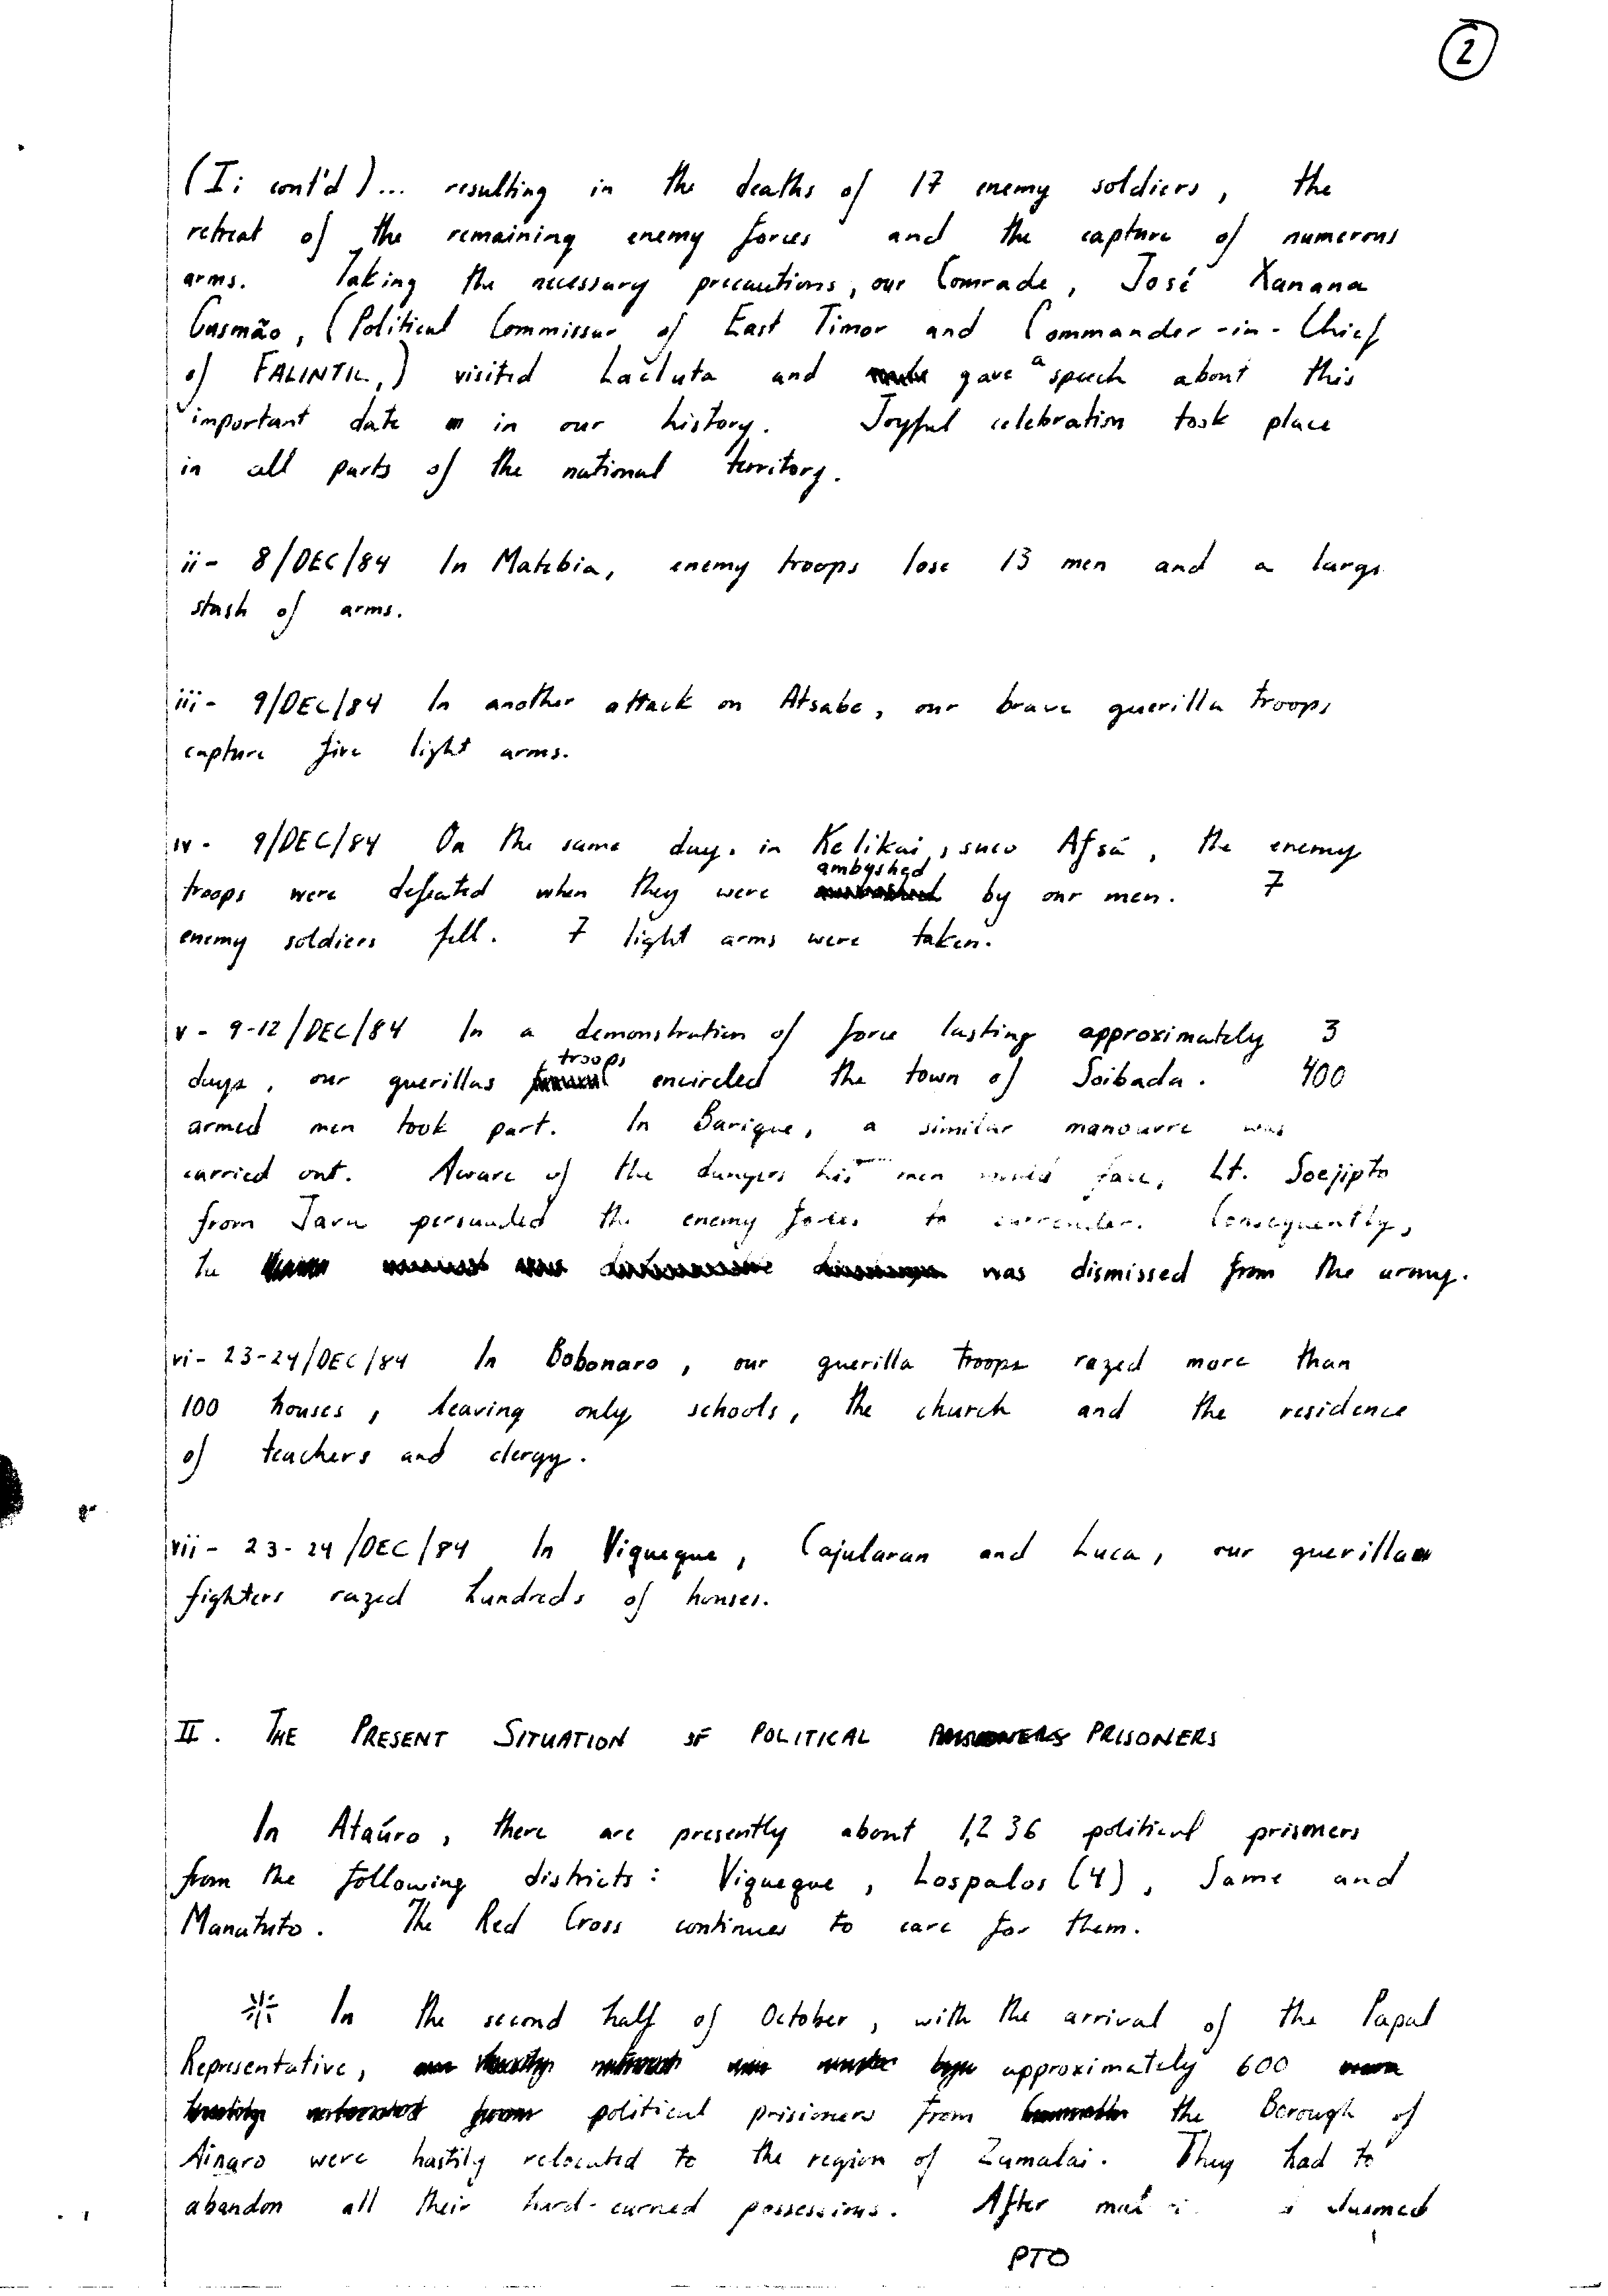 2
(I; cont'd)... resulting in the deaths of 17 enemy soldiers, the
retreat of the remaining enemy forces and the capture of numerous
arms. Taking the necessary precautions, our Comrade, José Xanana
Gusmão, (Political Commissar of East Timor and Commander-in-Chief
of FALINTIL,) visited Lacluta and gave a speech about this
important date in our history. Joyful celebration took place
in all parts of the national territory.
ii- 8/DEC/84 In Matebia, enemy troops lose 13 men and a large
stash of arms.
iii- 9/DEC/84 In another attack on Atsabe, our brave guerilla troops
capture five light arms.
iv- 9/DEC/84 On the same day, in Kelikai, suco Afsá, the enemy
troops were defeated when they were ambushed by our men. 7
enemy soldiers fell. 7 light arms were taken.
v- 9-12/DEC/84 In a demonstration of force lasting approximately 3
days, our guerillas troops encircled the town of Soibada. 400
armed men took part. In Barique, a similar manouvre was
carried out. Aware of the dangers his men would face, Lt. Soejipto
from Java persuaded the enemy forces to surrender. Consequently,
he was dismissed from the army.
vi- 23-24/DEC/84 In Bobonaro, our guerilla troops razed more than
100 houses, leaving only schools, the church and the residence
of teachers and clergy.
vii- 23-24/DEC/84 In Viqueque, Cajularan and Luca, our guerilla
fighters razed hundreds of houses.
II. THE PRESENT SITUATION OF POLITICAL PRISONERS
In Ataúro, there are presently about 1,236 political prisoners
from the following districts: Viqueque, Lospalos (4), Same and
Manatuto. The Red Cross continues to care for them.
* In the second half of October, with the arrival of the Papal
Representative, approximately 600
political prisioners from the Borough of
Ainaro were hastily relocated to the region of Zumalai. They had to
abandon all their hard-earned possessions. After
PTO